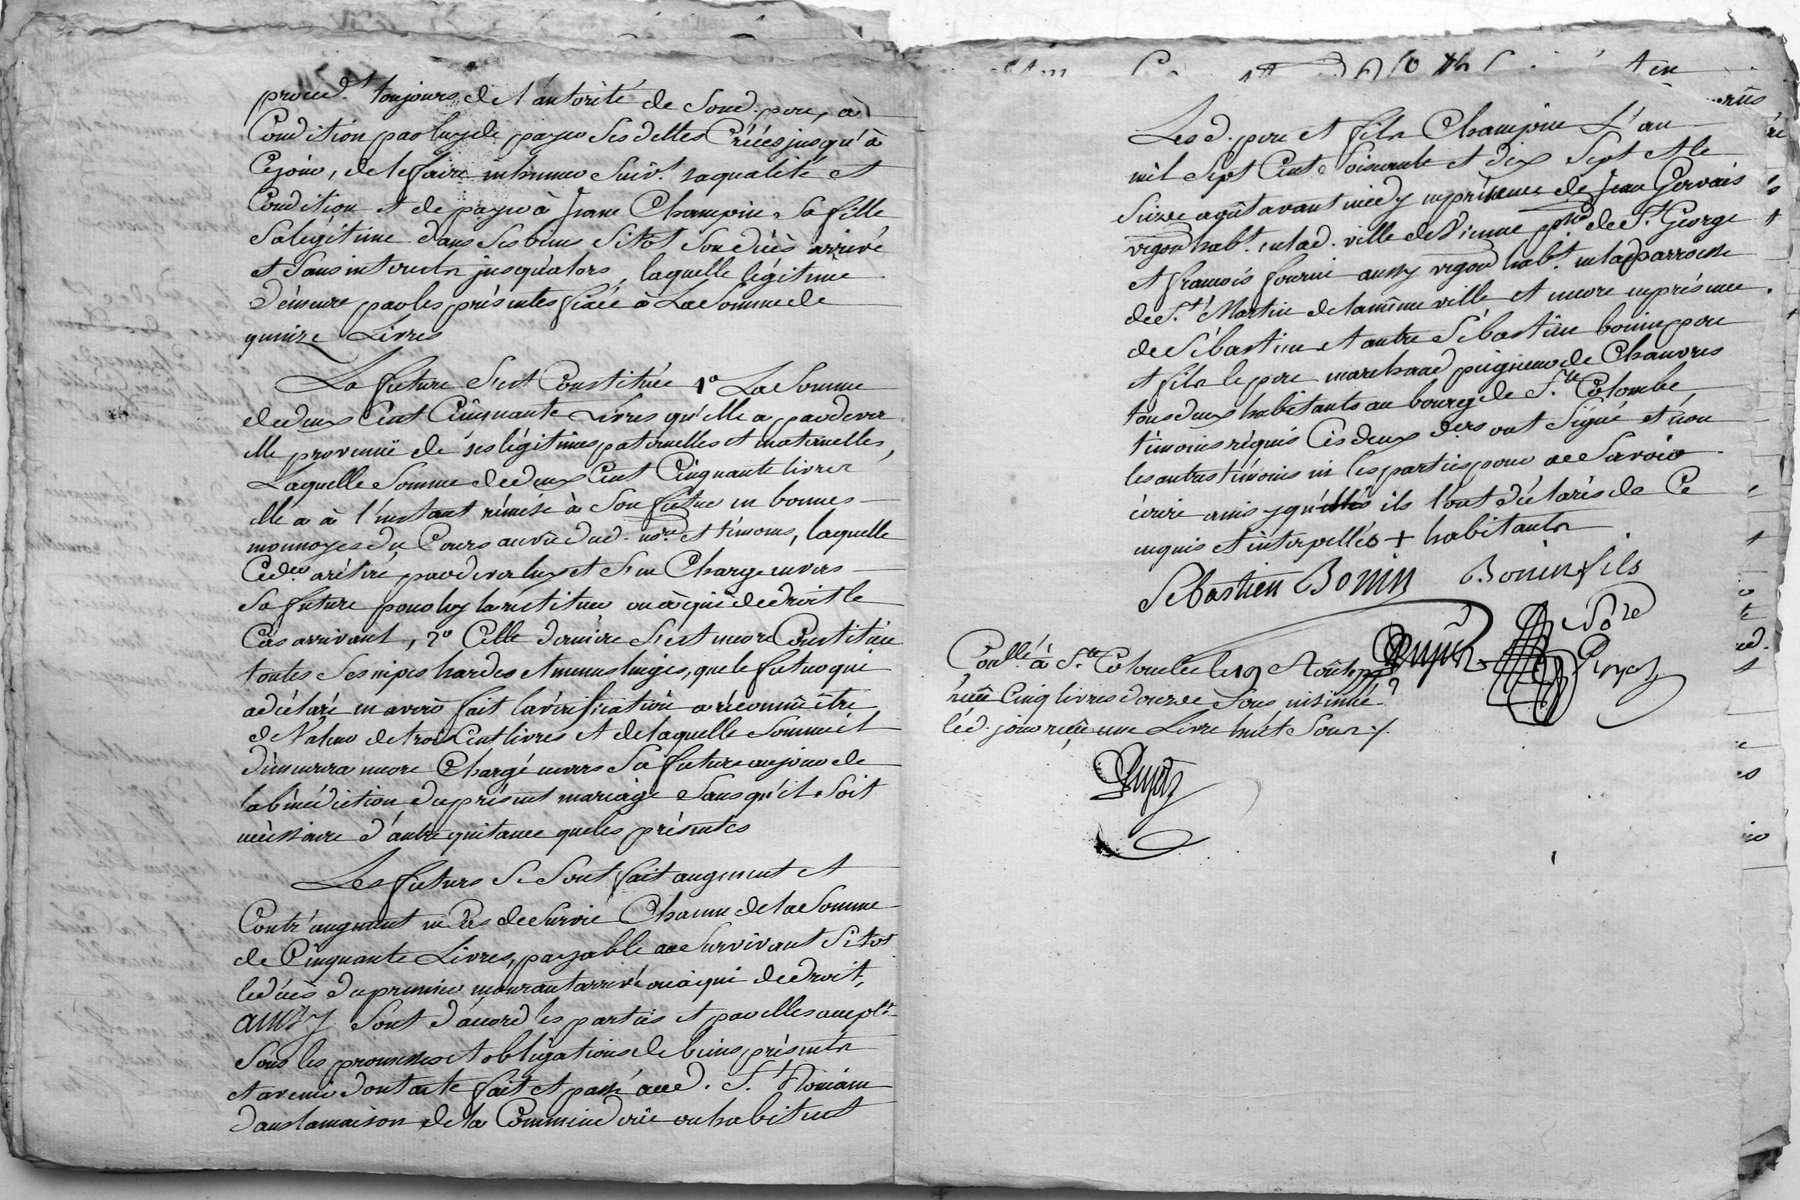 proced.t toujours de l'autorité de Soud. pere, à
Condition par luy de payer ses dettes Créées jusqu'à
Cejour, de le faire inhumer Suiv.t sa qualité et
Condition et de payer à Jeane Champin Sa fille
Salegitime dans ses biens Sitot Son décès arrivé
et Sans interests jusqu'alors, laquelle légitime
demeure par les présentes fixée à La Somme de
quinze Livres
La future S'est Constituée 1o La Somme
dedeux Cent Cinquante Livres qu'elle a pardever
elle provenüe de ses légitimes paternelles et maternelles,
Laquelle Somme dedeux Cent Cinquante livres
elle a à l'instant rémise à Son futur en bonnes
monnoyes du Cours au vû dud. nore et témoins, laquelle
Cedr a rétiré pardever luy et S'en Charge envers
Sa future pour luy la réstituer ou à qui dedroit le
Cas arrivant, 2o Celle dernière S'est encore Constituée
toutes Ses nipes hardes et menus linges, que le futur qui
a déclaré en avoir fait la vérification a réconnu être
de Valeur de trois Cent livres et de laquelle Somme il
demeurera encore Chargé envers Sa future au jour de
la bénédiction du présent mariage Sans qu'il Soit
nécéssaire d'autre quitance que les présentes
Les futurs Se Sont fait augment et
Contr'augment en Cas de Survie Chacun de la Somme
de Cinquante Livres, payable au Survivant Sitot
le décès du premier mourant arrivé ou à qui de droit,
ainsy Sont d'acord les parties et par elles accepté
Sous les promesses et obligations de biens présents
et avenir dont acte fait et passé aud. St Romain
dans la maison de la Commenderie ou habitent
Lesd. pere et fils Champin L'an
mil Sept Cent Soixante et dix Sept et le
Seize août avant midy en présence de Jean Gervais
vigon habt. en lad. ville de Vienne psse de St George
et francois fournie aussy vigon habt. en la parroisse
de St Martin de la même ville et encore en présence
de Sébastien et autre Sébastien bonin pere
et fils le pere marchand peigneur de Chanvres
tous deux habitants au bourg de Ste Colombe,
témoins réquis Ces deux ders ont Signé et non
les autres témoins ni les parties pour ne Savoir
écrire ainsy qu'ils l'ont déclaré de Ce
enquis et interpellés + habitants
Sebastien Bonin Bonin fils
Conllé à Ste Colombe le 19 Aoûst
récû Cinq livres douze Sous insinüé
led. jour récû une Livre huit Sous